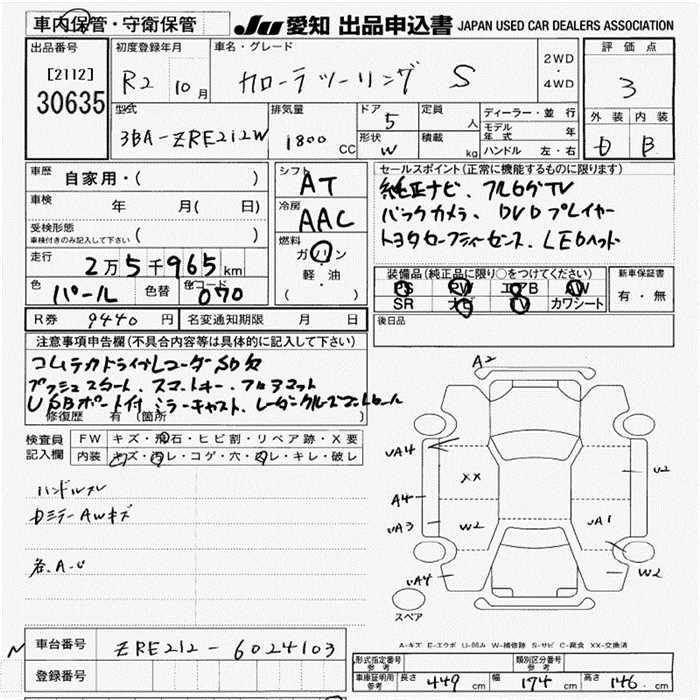 車内保管・守衛保管
JU 愛知 出品申込書 JAPAN USED CAR DEALERS ASSOCIATION
出品番号
[2112]
30635
初度登録年月
R2 10月
車名・グレード
カローラツーリング S
2WD
・
4WD
評価点
3
外装 内装
B
型式
3BA-ZRE212W
排気量
1800 CC
ドア
5
形状
W
定員
人
積載
kg
ディーラー・並行
モデル年式 年
ハンドル 左・右
車歴
自家用・( )
車検
年 月( 日)
受検形態
車検付きのみ記入して下さい ( )
走行
2万5千965km
色
パール
色替
色コード
070
シフト
AT
冷房
AAC
燃料
ガソリン
・
軽・油
( )
セールスポイント(正常に機能するものに限ります)
純正ナビ、フルセグTV
バックカメラ、DVDプレイヤー
トヨタセーフティーセンス、LEDヘッド
装備品(純正品に限り○をつけてください)
PS PW エアB AW
SR ナビ カワシート
新車保証書
有・無
後日品
R券 9440円
名変通知期限 月 日
注意事項申告欄(不具合内容等は具体的に記入して下さい)
コムテカドライブレコーダSD欠
プッシュスタート、スマートキー、フロアマット
USBポート付 ミラーキャスト、レーダークルーズコントロール
修復歴 有(箇所 )
検査員
記入欄
FW キズ・飛石・ヒビ割・リペア跡・X要
内装 キズ・汚レ・コゲ・穴・スレ・キレ・破レ
ハンドルスレ
カミラーAWキズ
各、A-U
A2
UA4
XX
U2
A4
UA3
W2
UA1
UA4
W2
スペア
A-キズ E-エクボ U-凹み W-補修跡 S-サビ C-腐食 XX-交換済
N
車台番号
ZRE212-6024103
登録番号
形式指定番号
参考
類別区分番号
参考
車庫証明用
参考
長さ 449 cm 幅 174 cm 高さ 146 cm